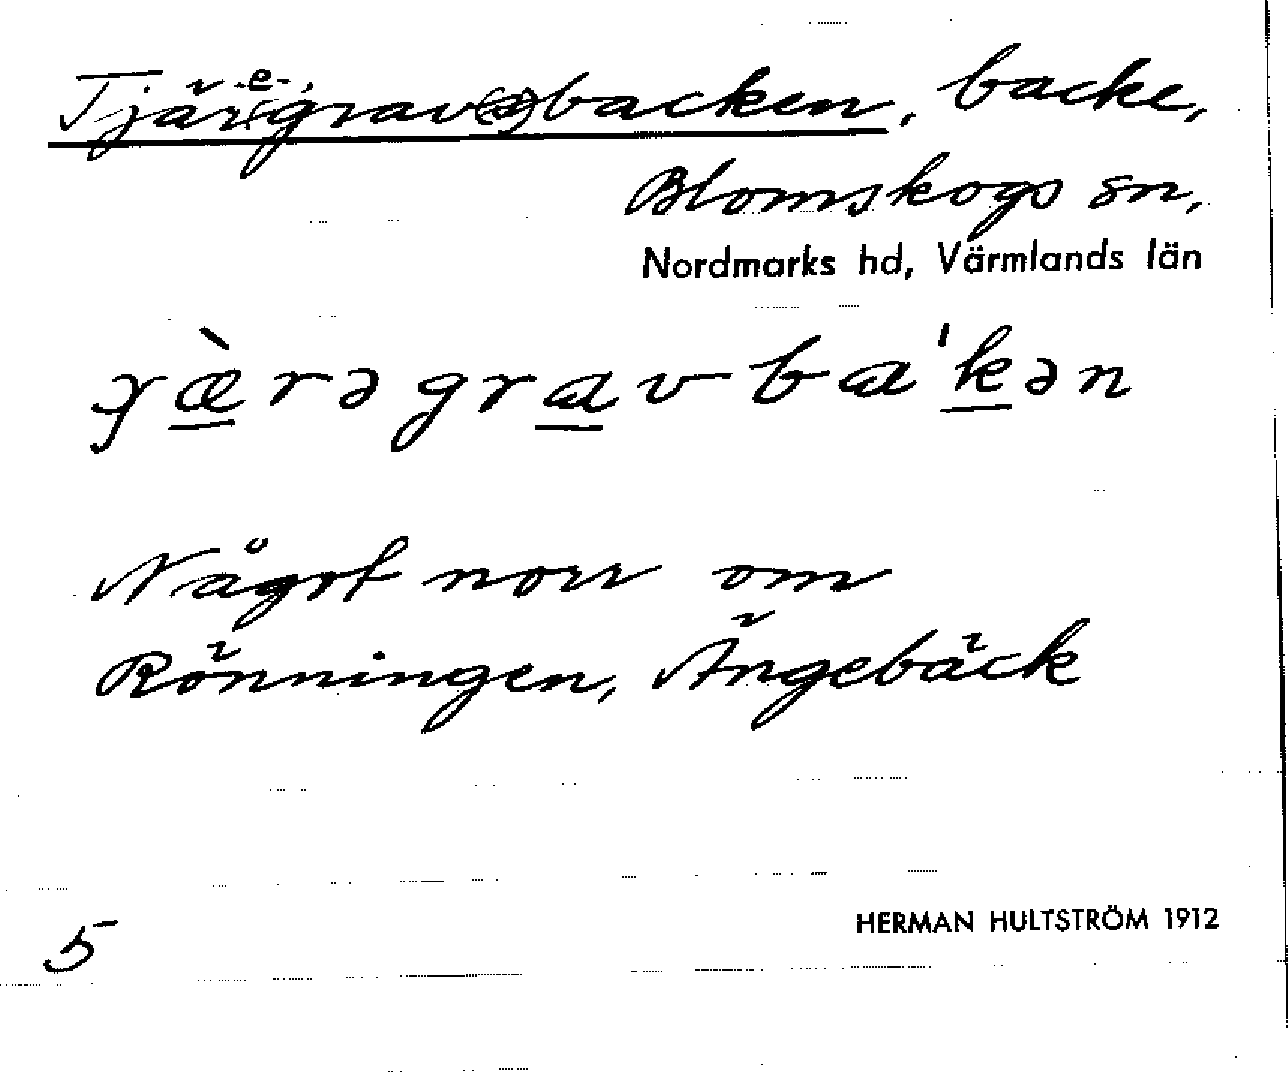 Tjäregravbacken, backe,
Blomskogs sn,
Nordmarks hd, Värmlands län
ɣæ̀rəgravba'kən
Någrt norr om
Rönningen, Ängebäck
HERMAN HULTSTRÖM 1912
5